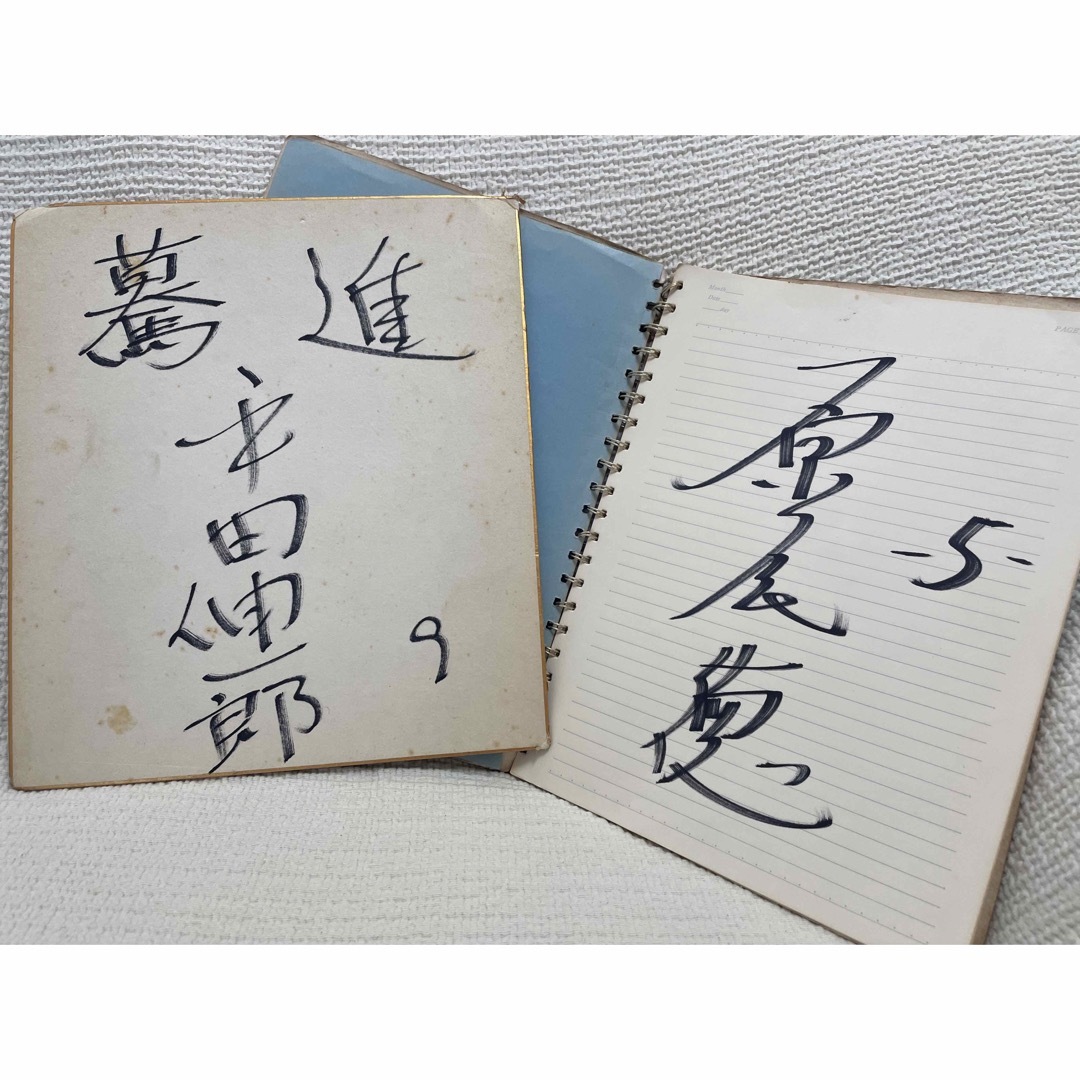 驀進
平田伸一郎
9
Month
Date
PAGE
原辰徳
-5-